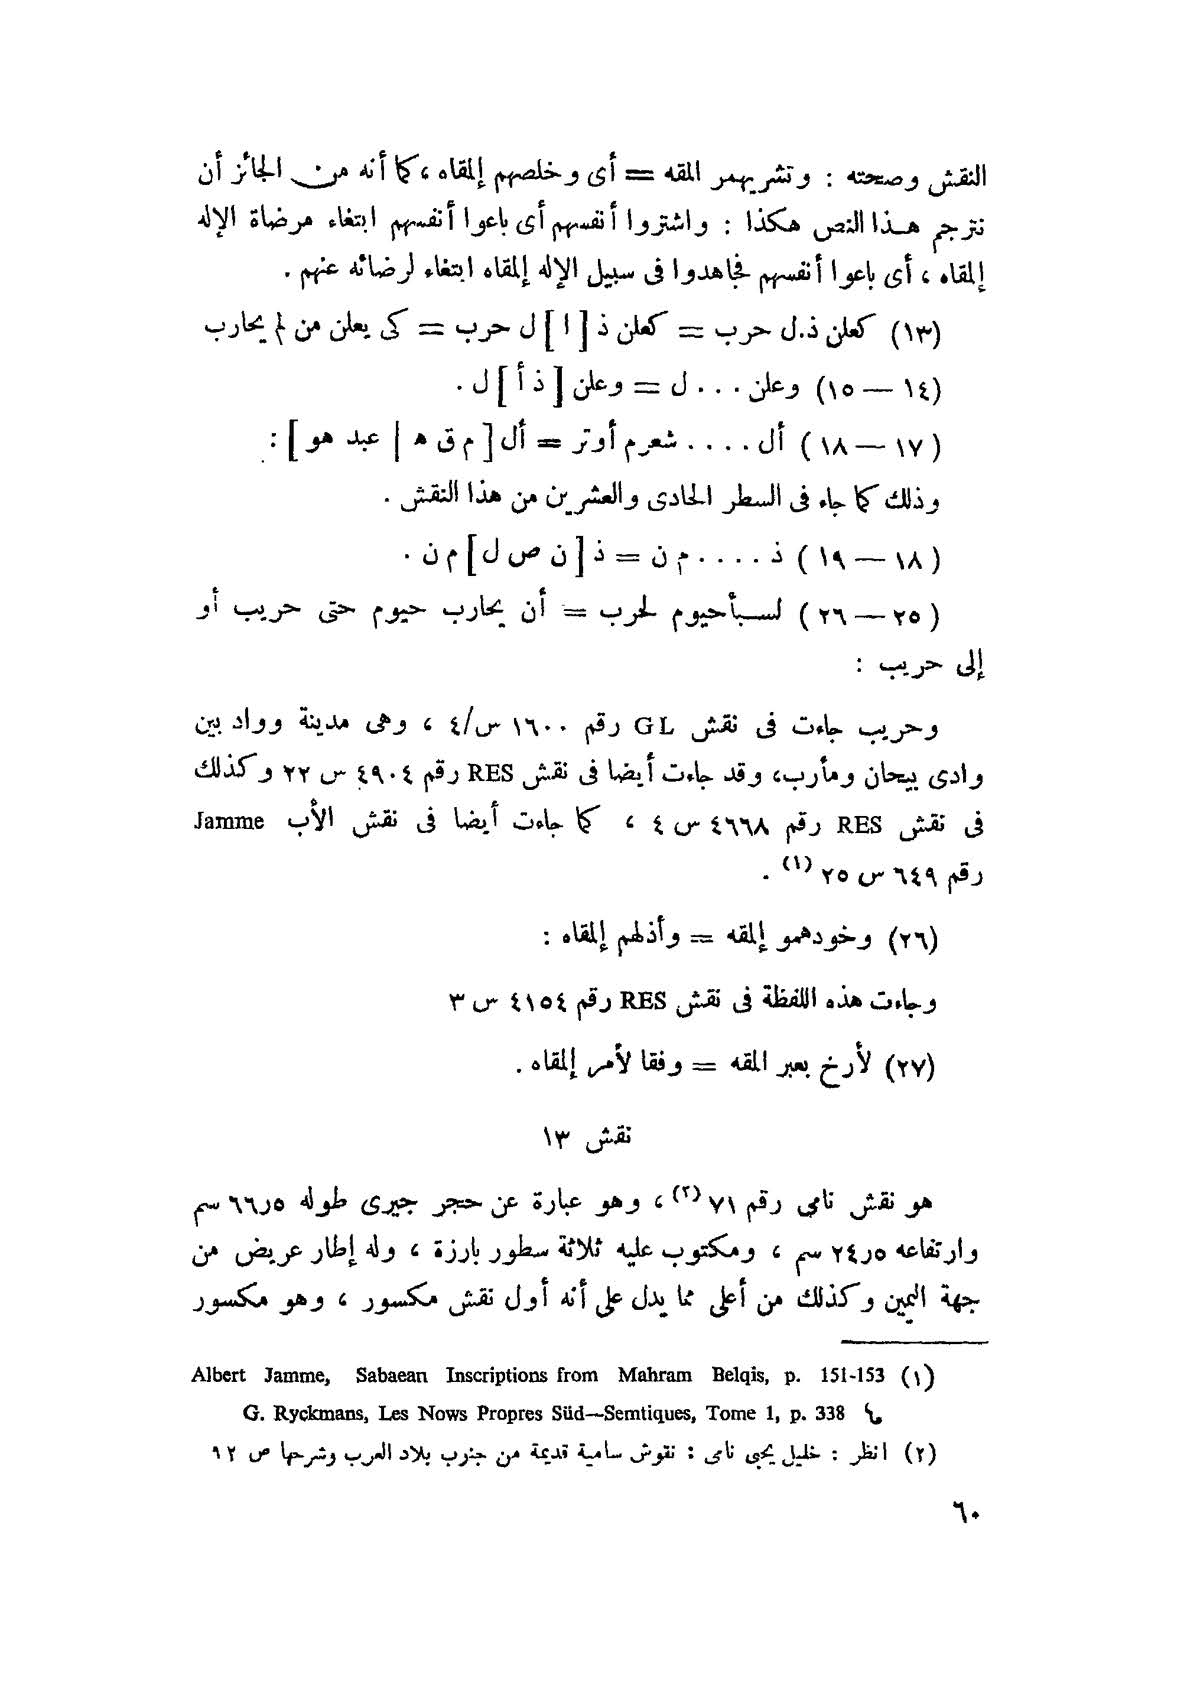 النقش وصحته : وتشريهمر المقه = أى وخلصهم إلمقاه ، كما أنه من الجائز أن
نترجم هذا النص هكذا : واشتروا أنفسهم أى باعوا أنفسهم ابتغاء مرضاة الإله
إلمقاه ، أى باعوا أنفسهم فجاهدوا فى سبيل الإله إلمقاه ابتغاء لرضائه عنهم .
(١٣) كعلن ذ.ل حرب = كعلن ذ [ ا ] ل حرب = كى يعلن من لم يحارب
(١٤ — ١٥) وعلن . . . ل = وعلن [ ذ أ ] ل .
(١٧ — ١٨) أل . . . . شعرم أوتر = أل [ م ق ه | عبد هو ] :
وذلك كما جاء فى السطر الحادى والعشرين من هذا النقش .
(١٨ — ١٩) ذ . . . . م ن = ذ [ ن ص ل ] م ن .
(٢٥ — ٢٦) لسبأحيوم لحرب = أن يحارب حيوم حتى حريب أو
إلى حريب :
وحريب جاءت فى نقش GL رقم ١٦٠٠ س/٤ ، وهى مدينة وواد بين
وادى بيحان ومأرب، وقد جاءت أيضا فى نقش RES رقم ٤٩٠٤ س ٢٢ وكذلك
فى نقش RES رقم ٤٦٦٨ س ٤ ، كما جاءت أيضا فى نقش الأب Jamme
رقم ٦٤٩ س ٢٥ (١) .
(٢٦) وخودهمو إلمقه = وأذلهم إلمقاه :
وجاءت هذه اللفظة فى نقش RES رقم ٤١٥٤ س ٣
(٢٧) لأرخ بعبر المقه = وفقا لأمر إلمقاه .
نقش ١٣
هو نقش نامى رقم ٧١ (٢) ، وهو عبارة عن حجر جيرى طوله ٦٦٫٥ سم
وارتفاعه ٢٤٫٥ سم ، ومكتوب عليه ثلاثة سطور بارزة ، وله إطار عريض من
جهة اليمين وكذلك من أعلى مما يدل على أنه أول نقش مكسور ، وهو مكسور
(١) Albert Jamme, Sabaean Inscriptions from Mahram Belqis, p. 151-153
G. Ryckmans, Les Nows Propres Süd—Semtiques, Tome 1, p. 338
(٢) انظر : خليل يحيى نامى : نقوش سامية قديمة من جنوب بلاد العرب وشرحها ص ٩٢
٦٠